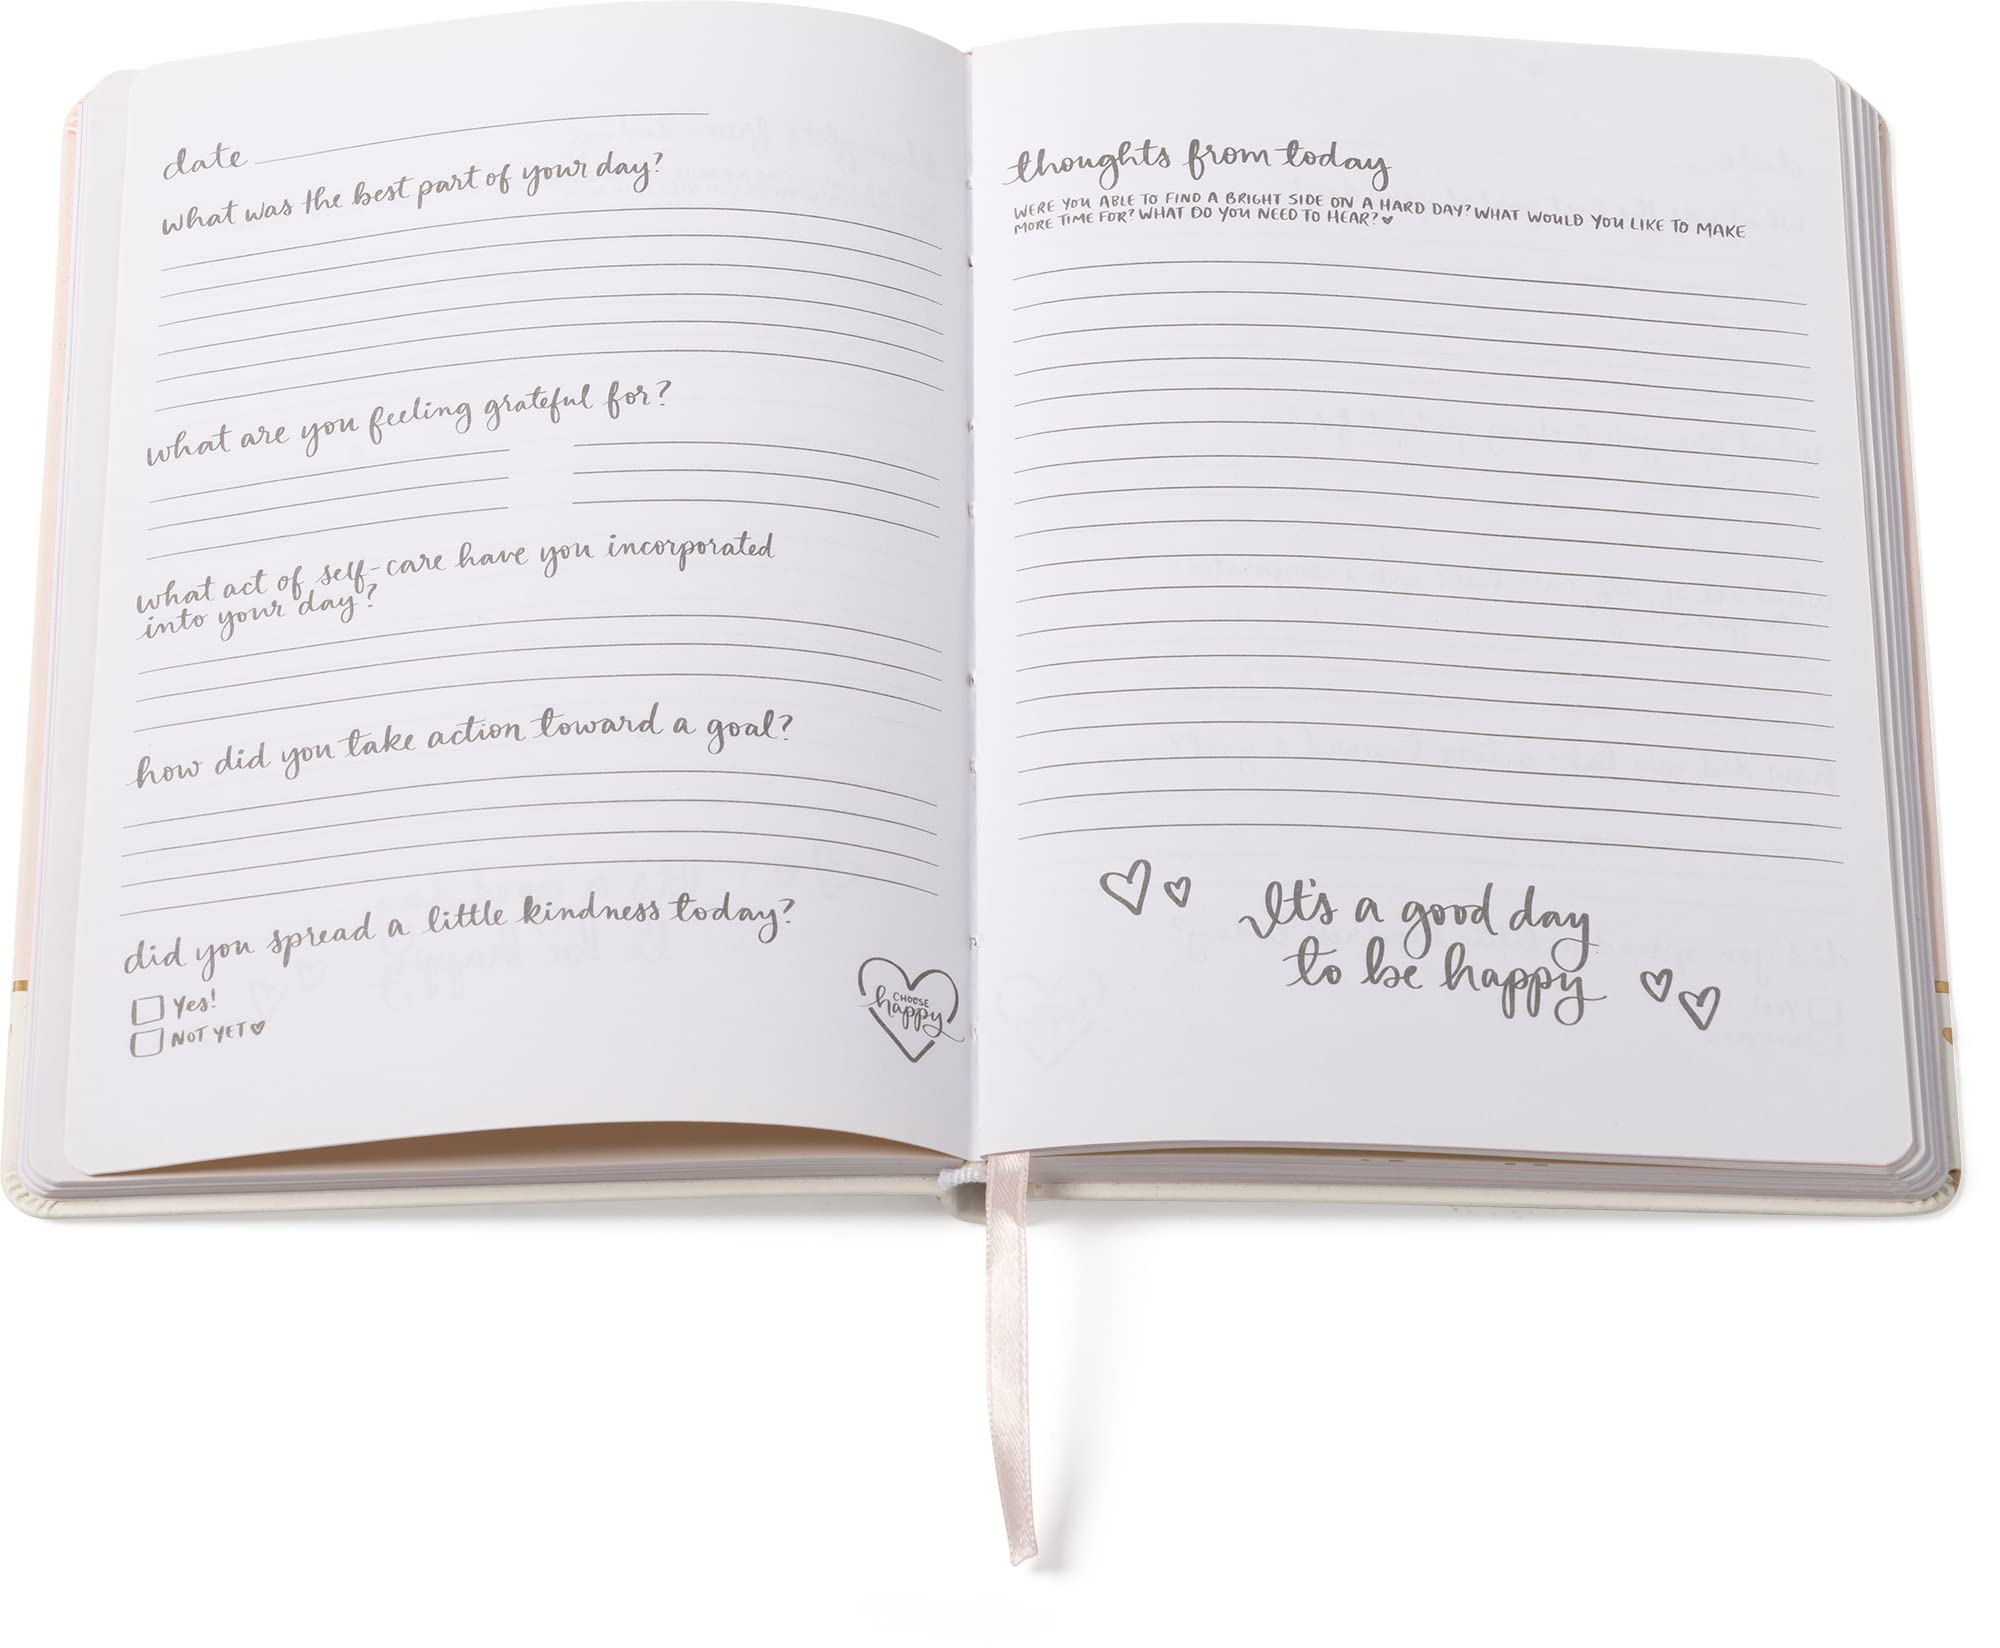 date
what was the best part of your day?
what are you feeling grateful for?
what act of self-care have you incorporated
into your day?
how did you take action toward a goal?
did you spread a little kindness today?
Yes!
NOT YET
CHOOSE
happy
thoughts from today
WERE YOU ABLE TO FIND A BRIGHT SIDE ON A HARD DAY? WHAT WOULD YOU LIKE TO MAKE
MORE TIME FOR? WHAT DO YOU NEED TO HEAR?
It's a good day
to be happy